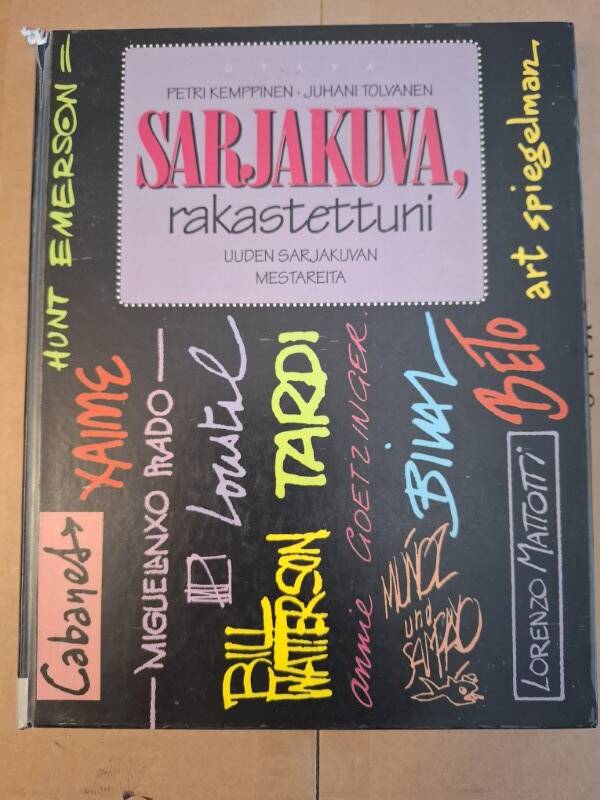 OTAVA
PETRI KEMPPINEN • JUHANI TOLVANEN
SARJAKUVA,
rakastettuni
UUDEN SARJAKUVAN
MESTAREITA
HUNT EMERSON
art spiegelman
XAIME
MIGUELANXO PRADO
Loustal
TARDI
annie GOETZINGER.
BiLAL
BETO
Cabanes
BILL
WATTERSON
MUÑOZ
und
SAMPAYO
LORENZO MATTOTTI